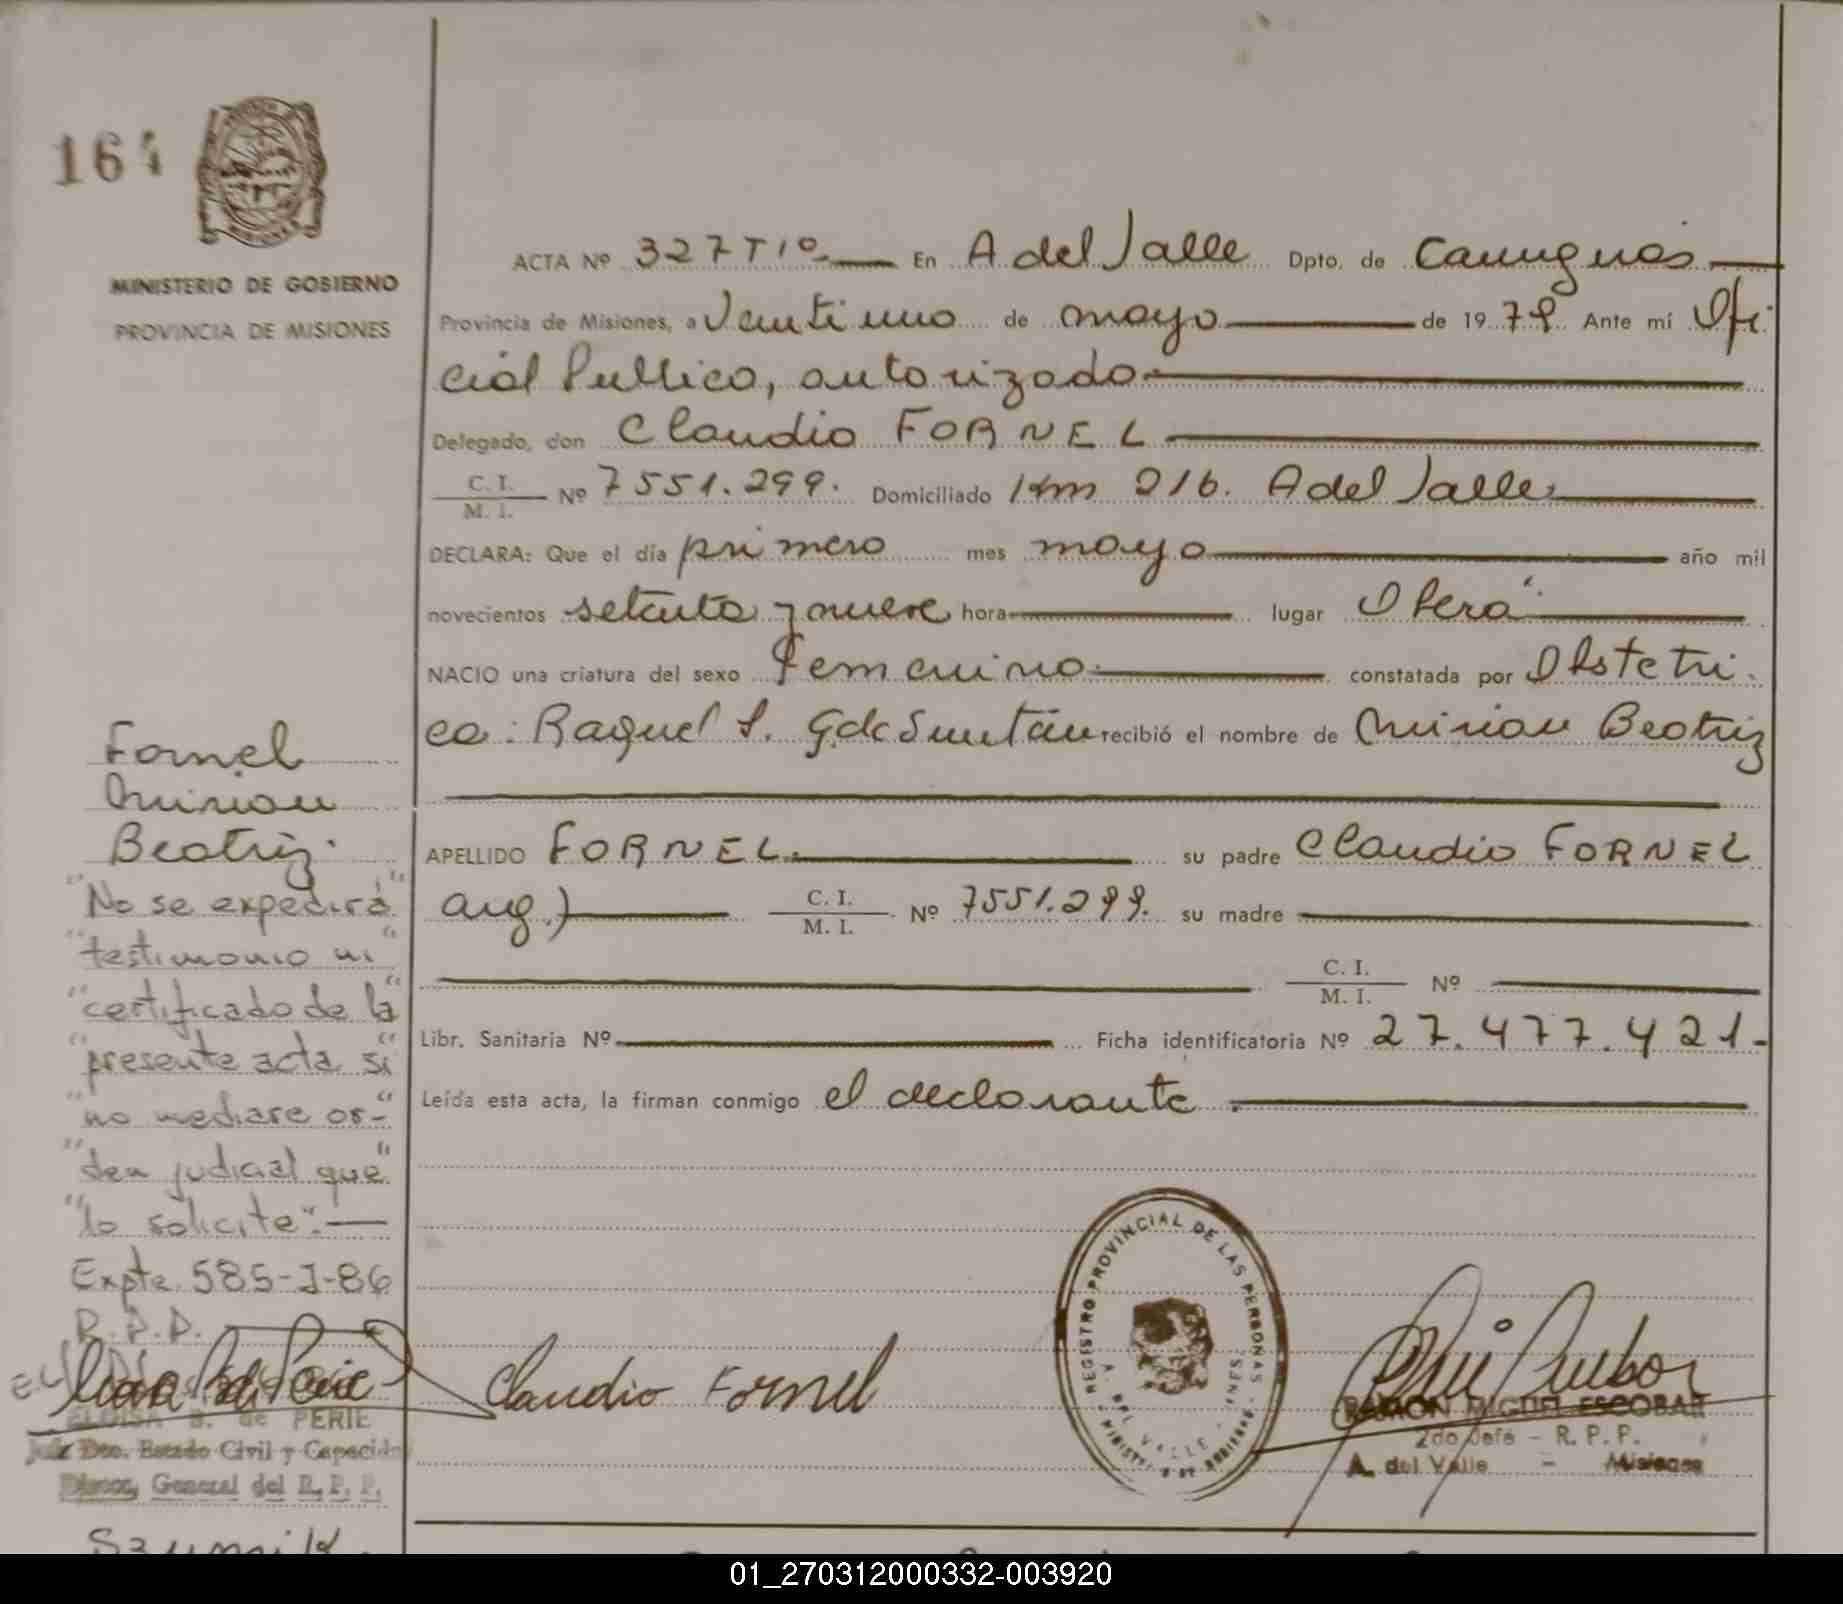 16
MINISTERIO DE GOBIERNO
PROVINCIA DE MISIONES
ACTA Nº 327 T 1º En A del Valle Dpto. de Caunguás
Provincia de Misiones, a Veintiuno de mayo de 19 79 Ante mí Ofi
cial Publico, autorizado
Delegado, don Claudio FORNEL
C. I.
M. I. Nº 7551.299. Domiciliado Km 216. A del Valle
DECLARA: Que el día primero mes mayo año mil
novecientos setenta y nueve hora lugar Oberá
NACIO una criatura del sexo Femenino constatada por Obstetri
ca: Raquel S. G de recibió el nombre de Mirian Beatriz
APELLIDO FORNEL su padre Claudio FORNEL
arg.) C. I.
M. I. Nº 7551.299. su madre
C. I.
M. I. Nº
Libr. Sanitaria Nº Ficha identificatoria Nº 27.477.421-
Leída esta acta, la firman conmigo el declarante
Fornel
Mirian
Beatriz.
"No se expedirá"
"testimonio ni"
"certificado de la"
"presente acta si"
"no mediare or-"
"den judicial que"
"lo solicite".—
Expte. 585-J-86
R.P.P.
ELOISA B. de PERIE
Dto. Estado Civil y Capacidad
General del R. P. P.
Claudio Fornel
REGISTRO PROVINCIAL DE LAS PERSONAS
A. DEL VALLE - MNES
MINISTERIO DE GOBIERNO
RAMON MIGUEL ESCOBAR
2do Jefe - R. P. P.
A. del Valle - Misiones
01_270312000332-003920